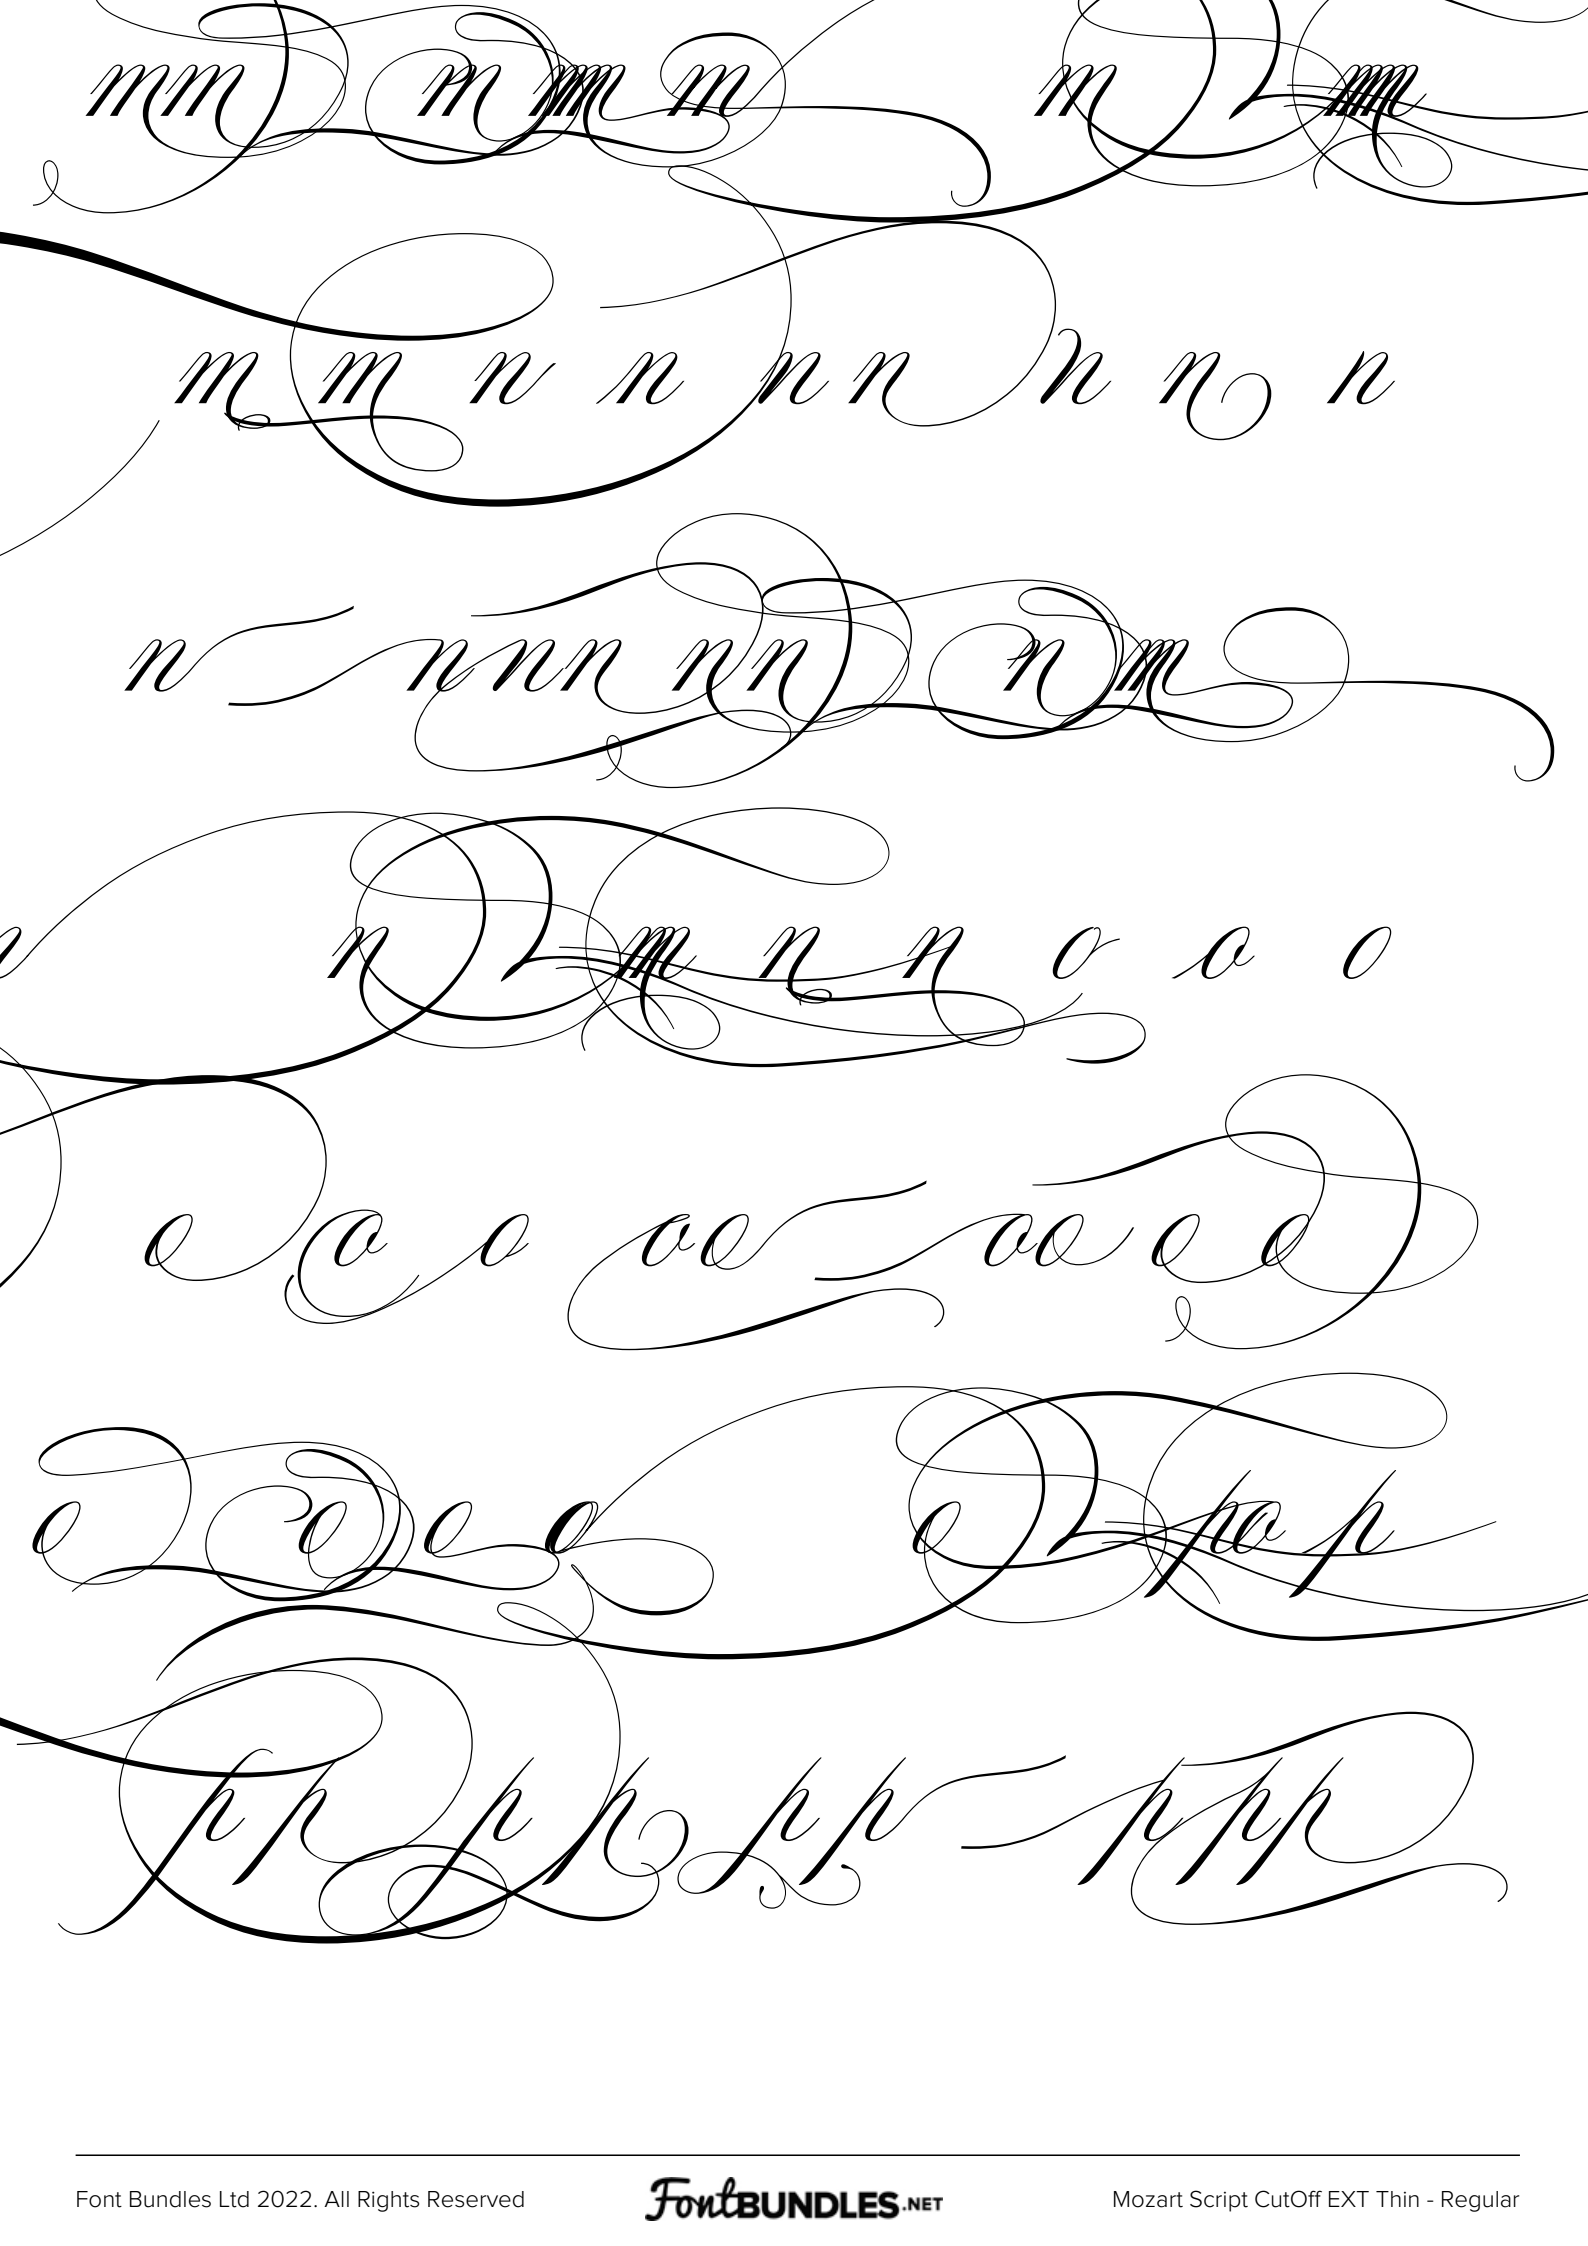 m m m m m m m m
m m n n n n n n n
n n n n n n n n m
n n m n n o o o
o o o o o o o o o
o o o o o p o p
p p p p p p p p p
Font Bundles Ltd 2022. All Rights Reserved FontBUNDLES.NET Mozart Script CutOff EXT Thin - Regular